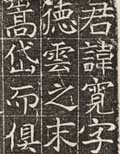 君諱寬字
德雲之末
嵩岱而俱